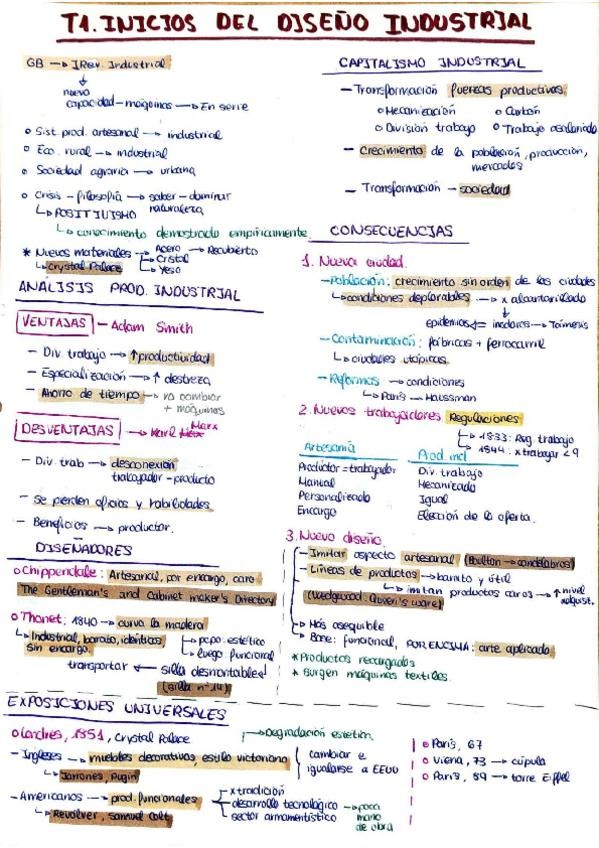 T1. INICIOS DEL DISEÑO INDUSTRIAL
GB → I Rev. Industrial
↓
nueva
capacidad - máquinas → En serie
o Sist. prod. artesanal → industrial
o Eco. rural → industrial
o Sociedad agraria → urbana
o Crisis - filosofía → saber - dominar
naturaleza
↳ POSITIVISMO
↳ conocimiento demostrado empíricamente
* Nuevos materiales → Acero → Recubierto
→ Cristal
→ Yeso
↳ Crystal Palace
ANÁLISIS PROD. INDUSTRIAL
VENTAJAS - Adam Smith
- Div trabajo → ↑ productividad
- Especialización → ↑ destreza
- Ahorro de tiempo → no cambiar
+ máquinas
DESVENTAJAS → Karl Marx
- Div. trab → desconexión
trabajador - producto
- Se pierden oficios y habilidades
- Beneficios → productor.
DISEÑADORES
o Chippendale: Artesanal, por encargo, caro
The Gentleman's and Cabinet maker's Directory
o Thonet: 1840 → curva la madera
↳ Industrial, barato, idénticos
sin encargo.
→ pcpo. estético
↳ luego funcional
transportar ← silla desmontables
(silla nº 14)
CAPITALISMO INDUSTRIAL
- Transformación fuerzas productivas.
o Mecanización o Carbón
o División trabajo o Trabajo asalariado
- Crecimiento de la población, producción,
mercados
- Transformación - sociedad
CONSECUENCIAS
1. Nueva ciudad.
- Población: crecimiento sin orden de las ciudades
↳ condiciones deplorables. → x alcantarillado
↓
epidemias ← inodoros → Támesis
- Contaminación: fábricas + ferrocarril
↳ ciudades utópicas
- Reformas → condiciones
↳ París → Haussman
2. Nuevos trabajadores Regulaciones
↳ 1833: Reg. trabajo
↳ 1844: x trabajar < 9
Artesanía Prod. ind
Productor = trabajador Div. trabajo
Manual Mecanizado
Personalizado Igual
Encargo Elección de la oferta.
3. Nuevo diseño.
- Imitar aspecto artesanal (Boulton → candelabros)
- Líneas de productos → barato y útil
↳ imitan productos caros → ↑ nivel
adquist.
(Wedgewood: Queen's ware)
↳ Más asequible
↳ Base: funcional, POR ENCIMA: arte aplicado
* Productos recargados
* Surgen máquinas textiles.
EXPOSICIONES UNIVERSALES
o Londres, 1851, Crystal Palace → Degradación estétic.
- Ingleses → muebles decorativos, estilo victoriano
↳ Jarrones, Pugin
cambiar e
igualarse a EEUU
- Americanos → prod. funcionales
↳ Revolver, Samuel Colt
x tradición
desarrollo tecnológico → poca
mano
de obra
sector armamentístico
o París, 67
o Viena, 73 → cúpula
o París, 89 → torre Eiffel